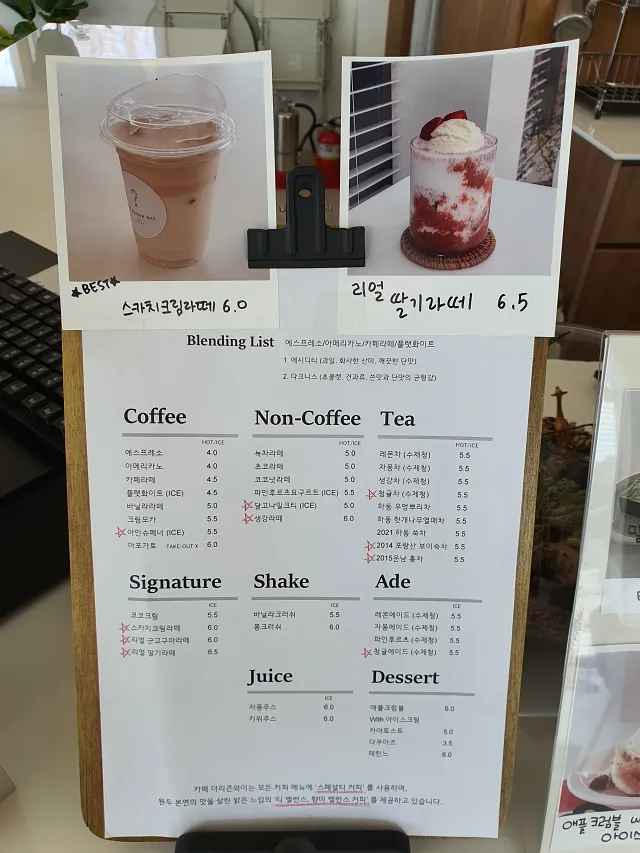 *BEST*
스카치크림라떼 6.0
리얼 딸기라떼 6.5
Blending List 에스프레소/아메리카노/카페라떼/플랫화이트
1. 에시디티 (과일, 화사한 산미, 깨끗한 단맛)
2. 다크니스 (초콜렛, 견과류, 쓴맛과 단맛의 균형감)
Coffee
HOT/ICE
에스프레소 4.0
아메리카노 4.0
카페라떼 4.5
플랫화이트 (ICE) 4.5
바닐라라떼 5.0
크림모카 5.5
아인슈페너 (ICE) 5.5
아포가토 TAKE-OUT X 6.0
Non-Coffee
HOT/ICE
녹차라떼 5.0
초코라떼 5.0
코코넛라떼 5.0
파인후르츠요구르트 (ICE) 5.5
달고나밀크티 (ICE) 5.0
생강라떼 6.0
Tea
HOT/ICE
레몬차 (수제청) 5.5
자몽차 (수제청) 5.5
생강차 (수제청) 5.5
청귤차 (수제청) 5.5
하동 우엉뿌리차 5.5
하동 헛개나무열매차 5.5
2021 하동 쑥차 5.5
2014 포랑산 보이숙차 5.5
2015운남 홍차 5.5
Signature
ICE
코코크림 5.5
스카치크림라떼 6.0
리얼 군고구마라떼 6.0
리얼 딸기라떼 6.5
Shake
ICE
바닐라크러쉬 5.5
퐁크러쉬 6.0
Ade
ICE
레몬에이드 (수제청) 5.5
자몽에이드 (수제청) 5.5
파인후르츠 (수제청) 5.5
청귤에이드 (수제청) 5.5
Juice
ICE
자몽주스 6.0
키위주스 6.0
Dessert
애플크럼블 6.0
With 아이스크림
카야토스트 5.0
다쿠아즈 3.5
테린느 6.0
카페 더리즌와이는 모든 카페 메뉴에 '스페셜티 커피' 를 사용하며,
원두 본연의 맛을 살린 밝은 느낌의 '티 밸런스, 향미 밸런스 커피' 를 제공하고 있습니다.
애플크럼블
아이스